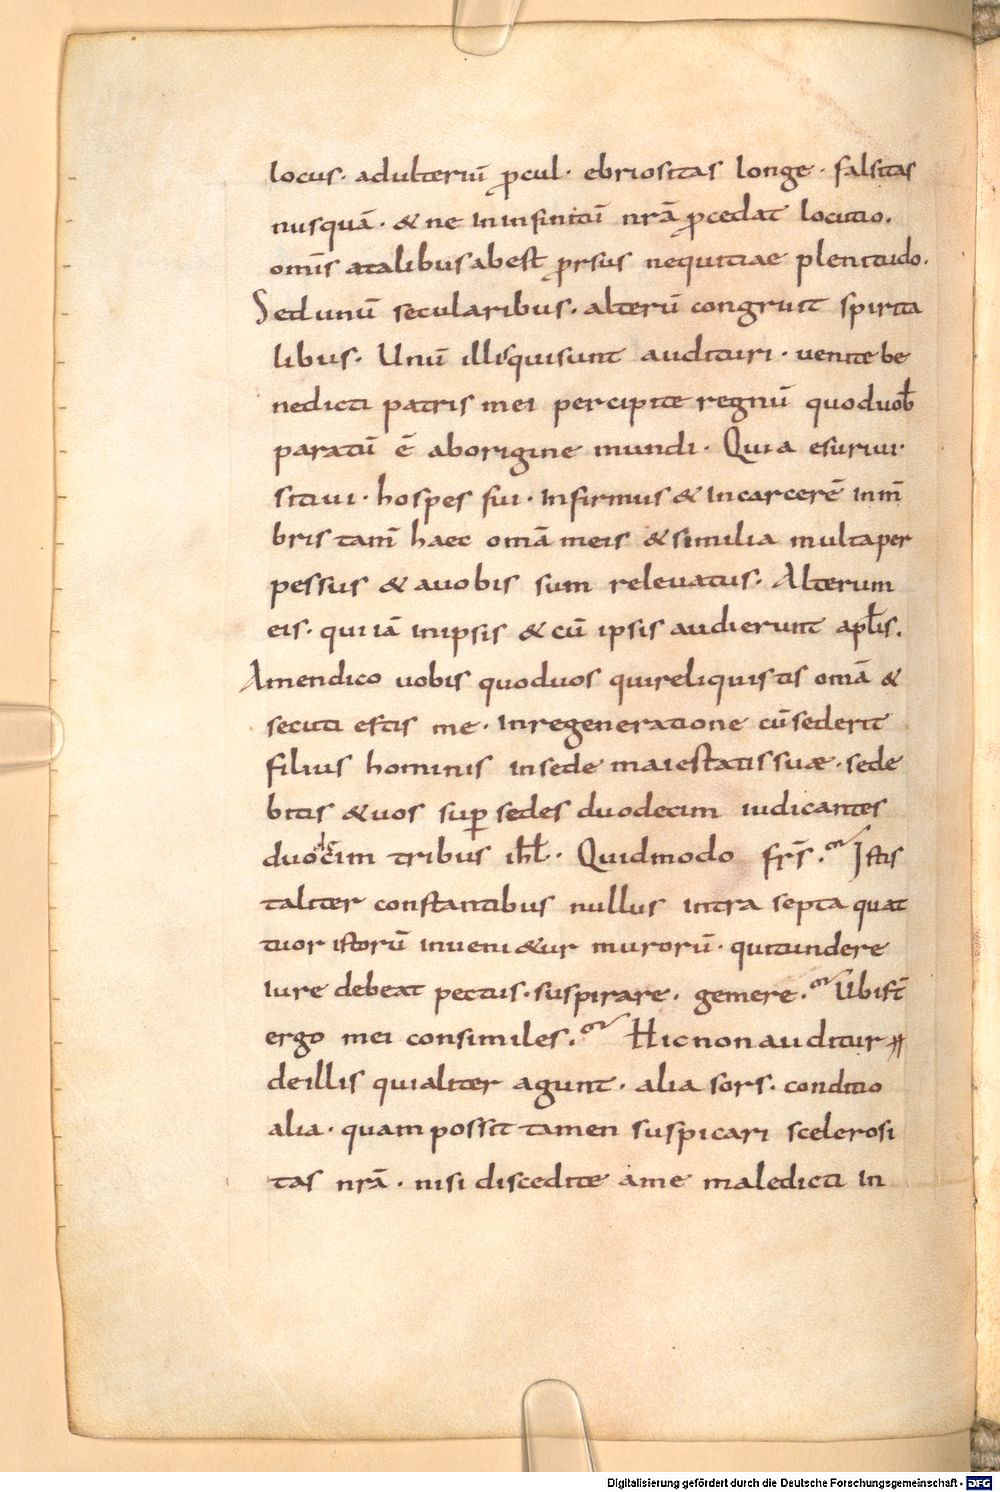 locus· adulteriū ꝓcul· ebriositas longe· falsitas
nusquā· & ne ininfinitū nr̄ā ꝓcedat locutio.
omīs atalibus abest ꝓrsus nequitiae plenitudo.
Sed unū secularibus. alterū congruit spirita
libus· Unū illis qui sunt audituri· uenite be
nedicti patris mei percipite regnū quod uob̄
paratū ē ab origine mundi· Quia esuriui·
sitiui· hospes fui· infirmus & incarcerē inm̄
bris tam̄ haec omā meis & similia multa per
pessus & a uobis sum releuatus· Alterum
eis· qui iā inipsis & cū ipsis audierunt apl̄is.
Amen dico uobis quod uos qui reliquistis omā &
secuti estis me· In regeneratione cū sederit
filius hominis in sede maiestatis suæ· sede
bitis & uos sup̄ sedes duodecim iudicantes
duodecim tribus ihl̄· Quid modo fr̄s. Istis
taliter constantibus nullus intra septa quat
tuor istorū inueni&ur murorū· qui tundere
iure debeat pectus· suspirare. gemere. Ubi st̄
ergo mei consimiles. Hic non auditur
de illis qui aliter agunt· alia sors. conditio
alia· quam possit tamen suspicari scelerosi
tas nr̄ā· nisi discedite a me maledicti in
Digitalisierung gefördert durch die Deutsche Forschungsgemeinschaft - DFG